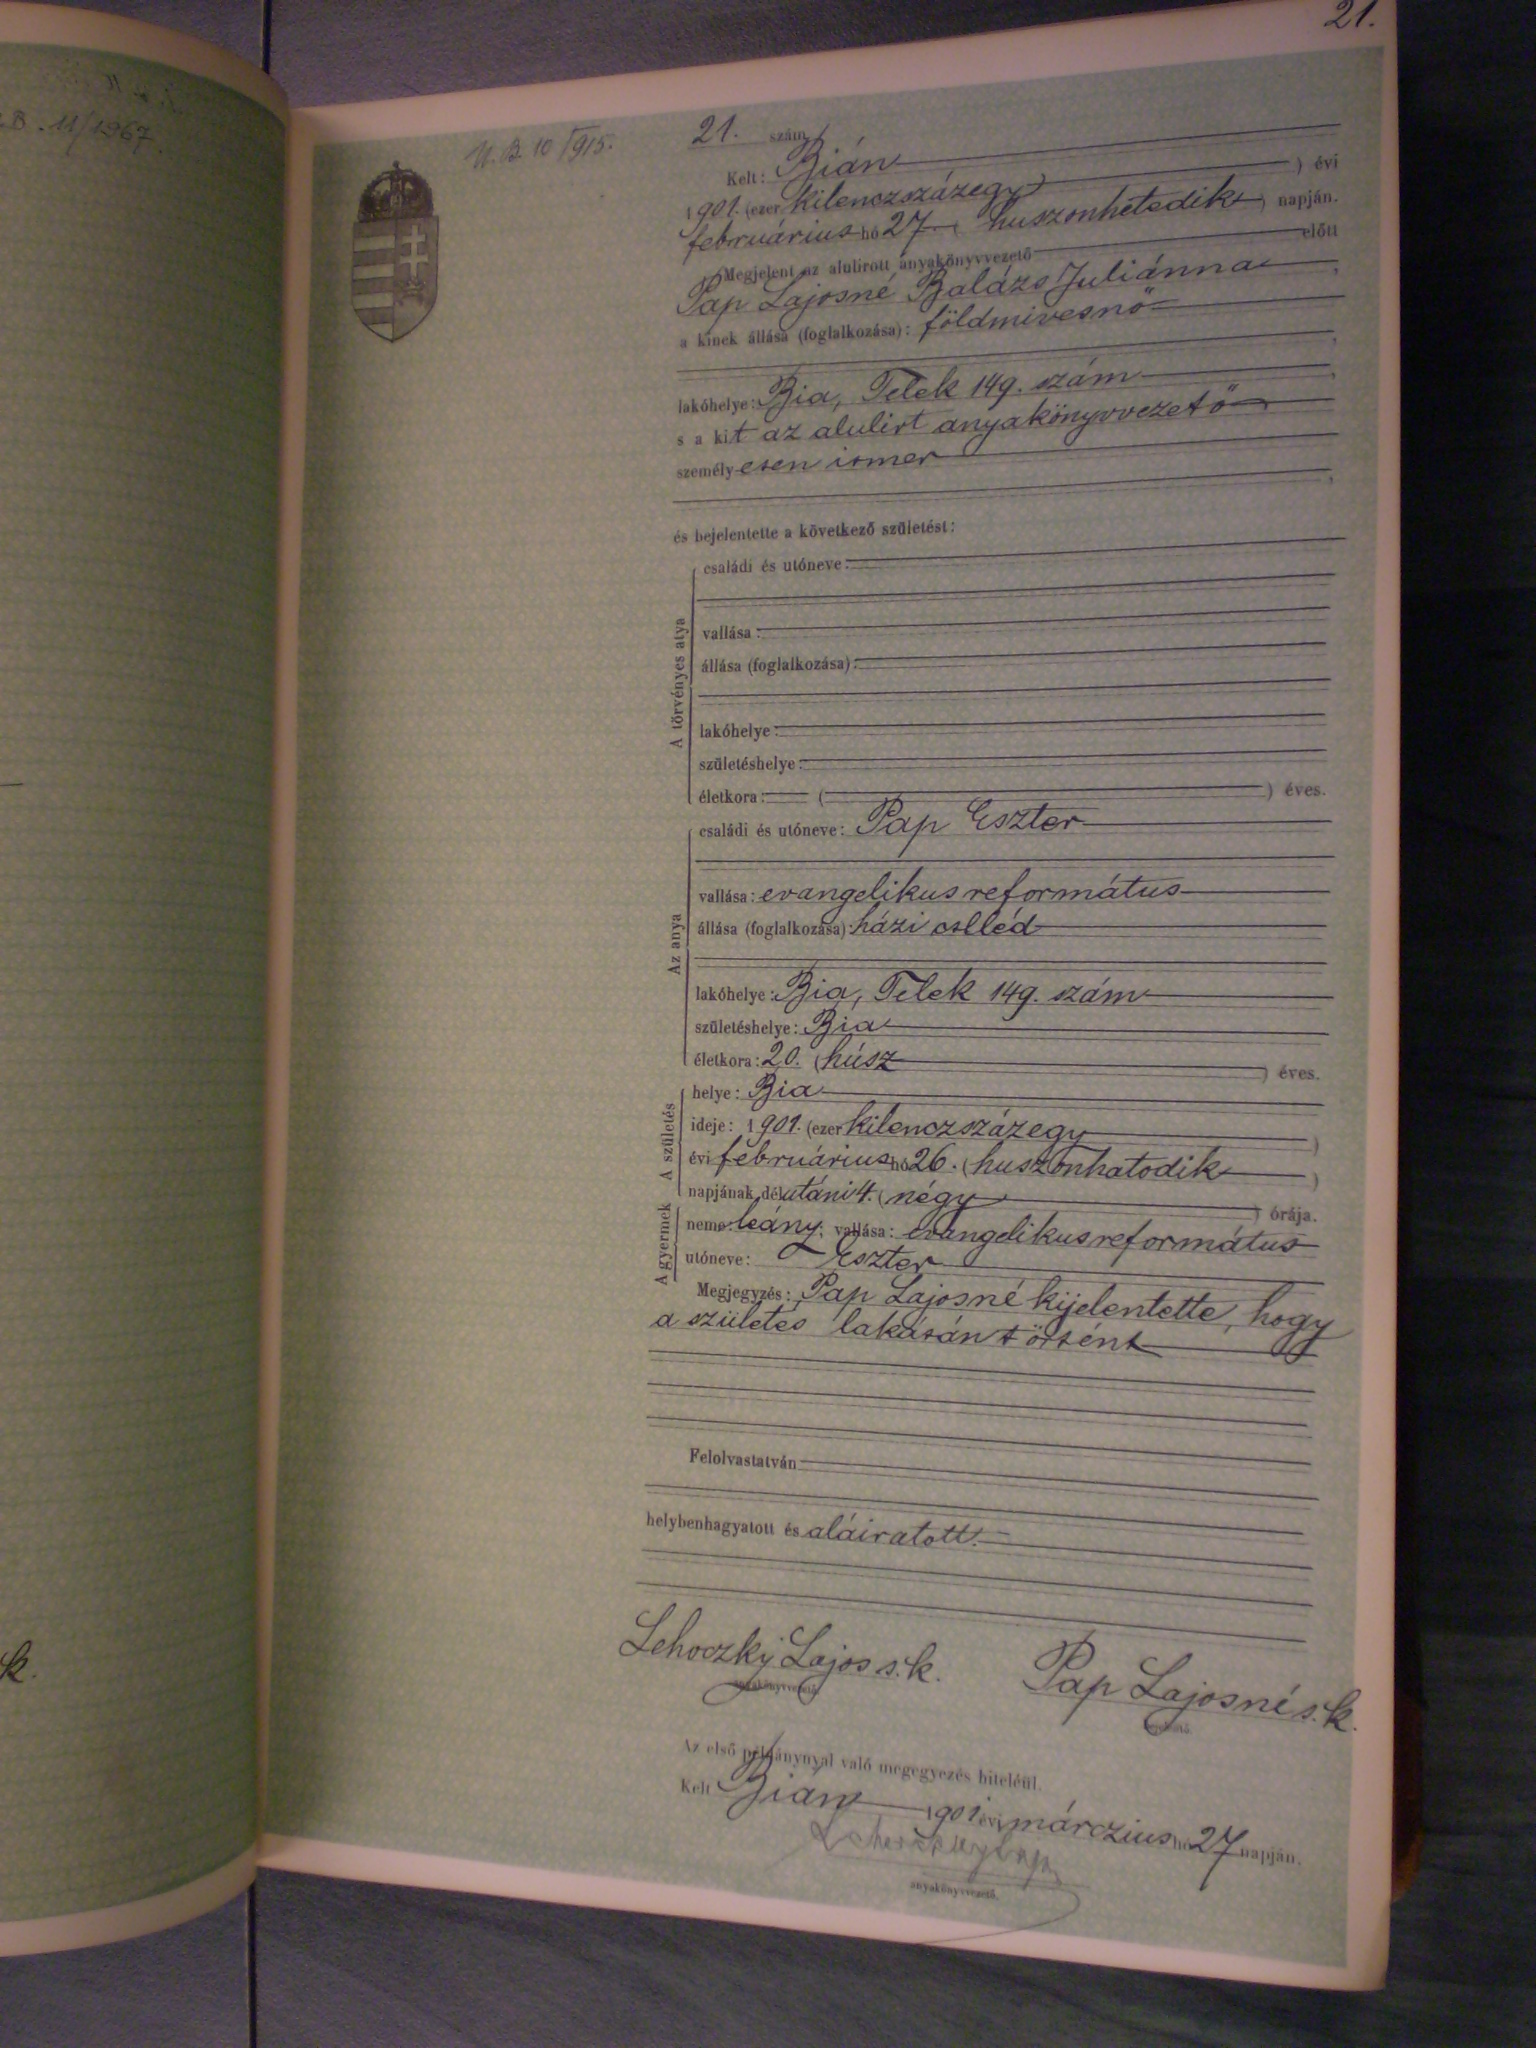 21.
B. 11/1967.
U. B. 10/915.
21. szám
Kelt: Bián ) évi
1901. (ezer kilenczszázegy)
februárius hó 27. ( huszonhetedik ) napján.
Megjelent az alulirott anyakönyvvezető előtt
Pap Lajosné Balázs Juliánna ,
a kinek állása (foglalkozása): földmivesnő
,
lakóhelye: Bia, Telek 149. szám ,
s a kit az alulirt anyakönyvvezető
személyesen ismer
,
és bejelentette a következő születést:
A törvényes atya
családi és utóneve:
vallása:
állása (foglalkozása):
lakóhelye:
születéshelye:
életkora: ( ) éves.
Az anya
családi és utóneve: Pap Eszter
vallása: evangelikus református
állása (foglalkozása): házi cseléd
lakóhelye: Bia, Telek 149. szám
születéshelye: Bia
életkora: 20. (húsz ) éves.
A születés
helye: Bia
ideje: 1901. (ezer kilenczszázegy )
évi februárius hó 26. (huszonhatodik )
napjának délutáni 4. (négy ) órája.
A gyermek
neme: leány; vallása: evangelikus református
utóneve: Eszter
Megjegyzés: Pap Lajosné kijelentette, hogy
a születés lakásán történt
Felolvastatván
helybenhagyatott és aláiratott.
Lehoczky Lajos s. k. Pap Lajosné s. k.
anyakönyvvezető.
k.
Az első példánynyal való megegyezés hiteléül.
Kelt Bián 1901 évi márczius hó 27 napján.
Lehoczky Lajos
anyakönyvvezető.